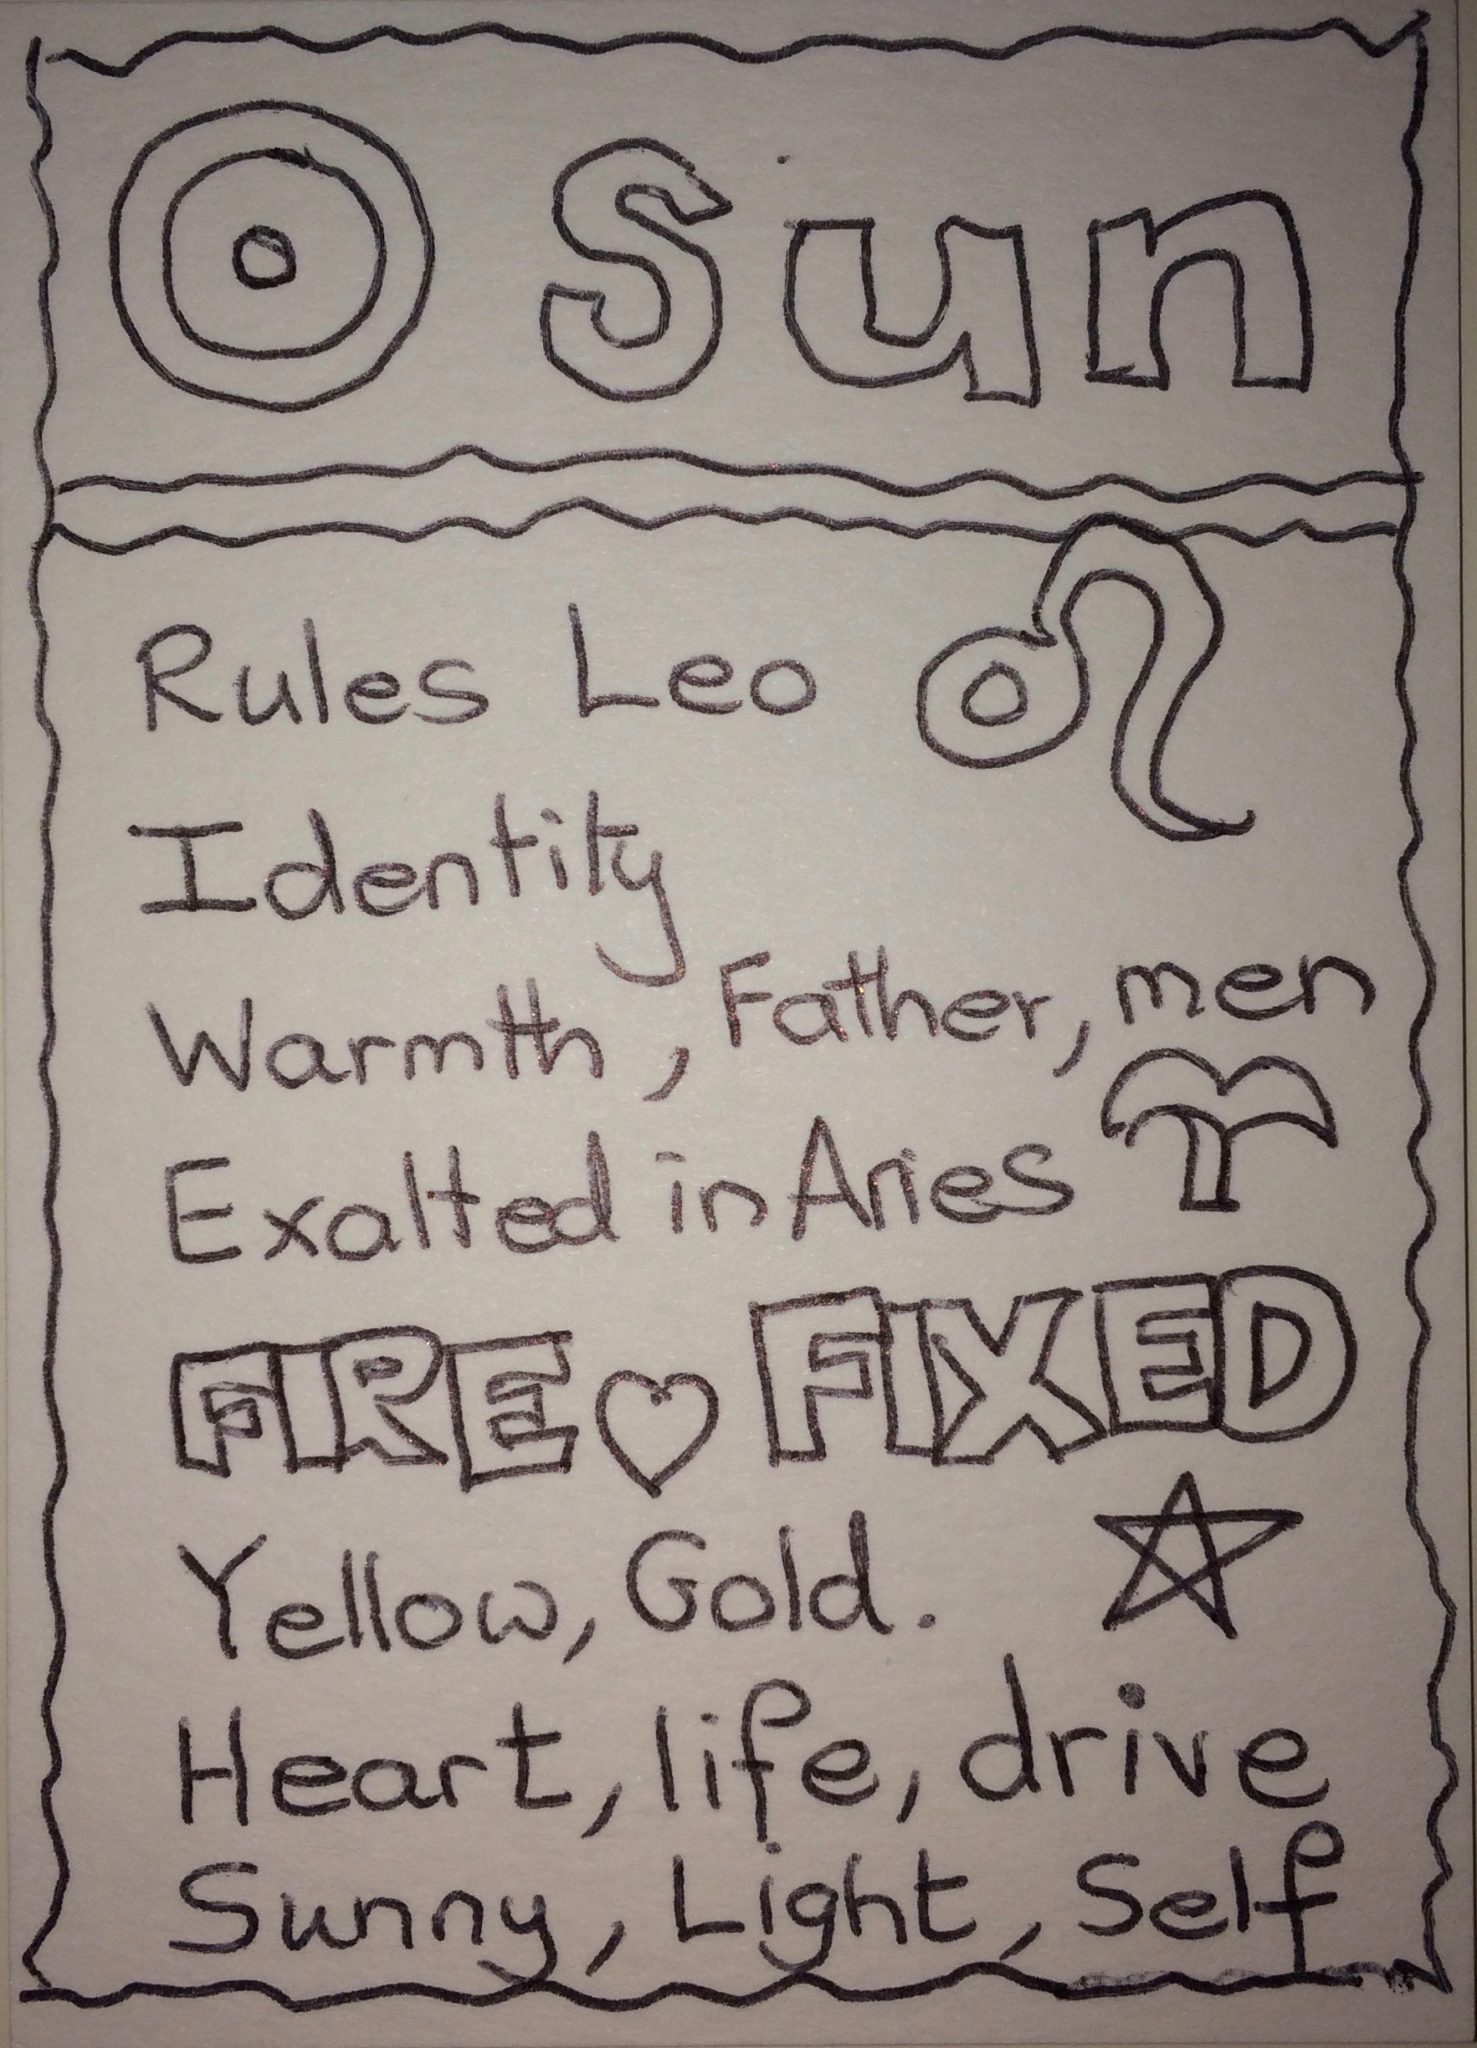 Sun
Rules Leo
Identity
Warmth, Father, men
Exalted in Aries
FIRE FIXED
Yellow, Gold.
Heart, life, drive
Sunny, Light, Self